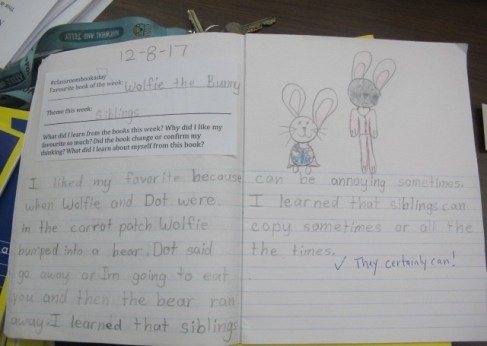 12-8-17
#classroombookaday
Favourite book of the week: Wolfie the Bunny
Theme this week: Siblings
What did I learn from the books this week? Why did I like my
favourite so much? Did the book change or confirm my
thinking? What did I learn about myself from this book?
I liked my favorite because
when Wolfie and Dot were
in the carrot patch Wolfie
bumped into a bear. Dot said
go away or Im going to eat
you and then the bear ran
away. I learned that siblings
can be annoying sometimes.
I learned that siblings can
copy sometimes or all the
the times.
✓ They certainly can!